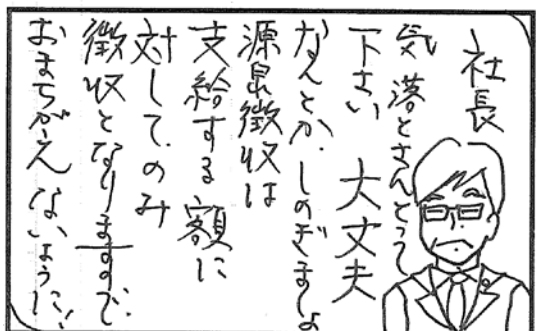 社長
気落とさんとって
下さい 大丈夫
なんとか、しのぎましょ
源泉徴収は
支給する額に
対してのみ
徴収となりますので、
おまちがえないように!